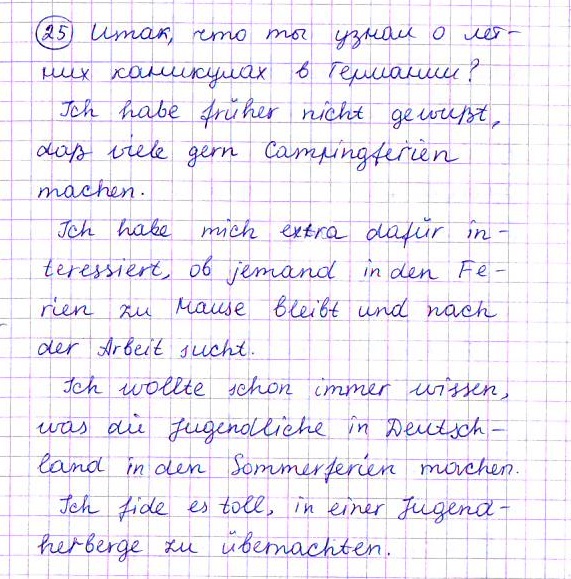 25 Итак, что ты узнал о лет-
них каникулах в Германии?
Ich habe früher nicht gewußt,
daß viele gern Campingferien
machen.
Ich habe mich extra dafür in-
teressiert, ob jemand in den Fe-
rien zu Hause bleibt und nach
der Arbeit sucht.
Ich wollte schon immer wissen,
was die Jugendliche in Deutsch-
land in den Sommerferien machen.
Ich fide es toll, in einer Jugend-
herberge zu übernachten.